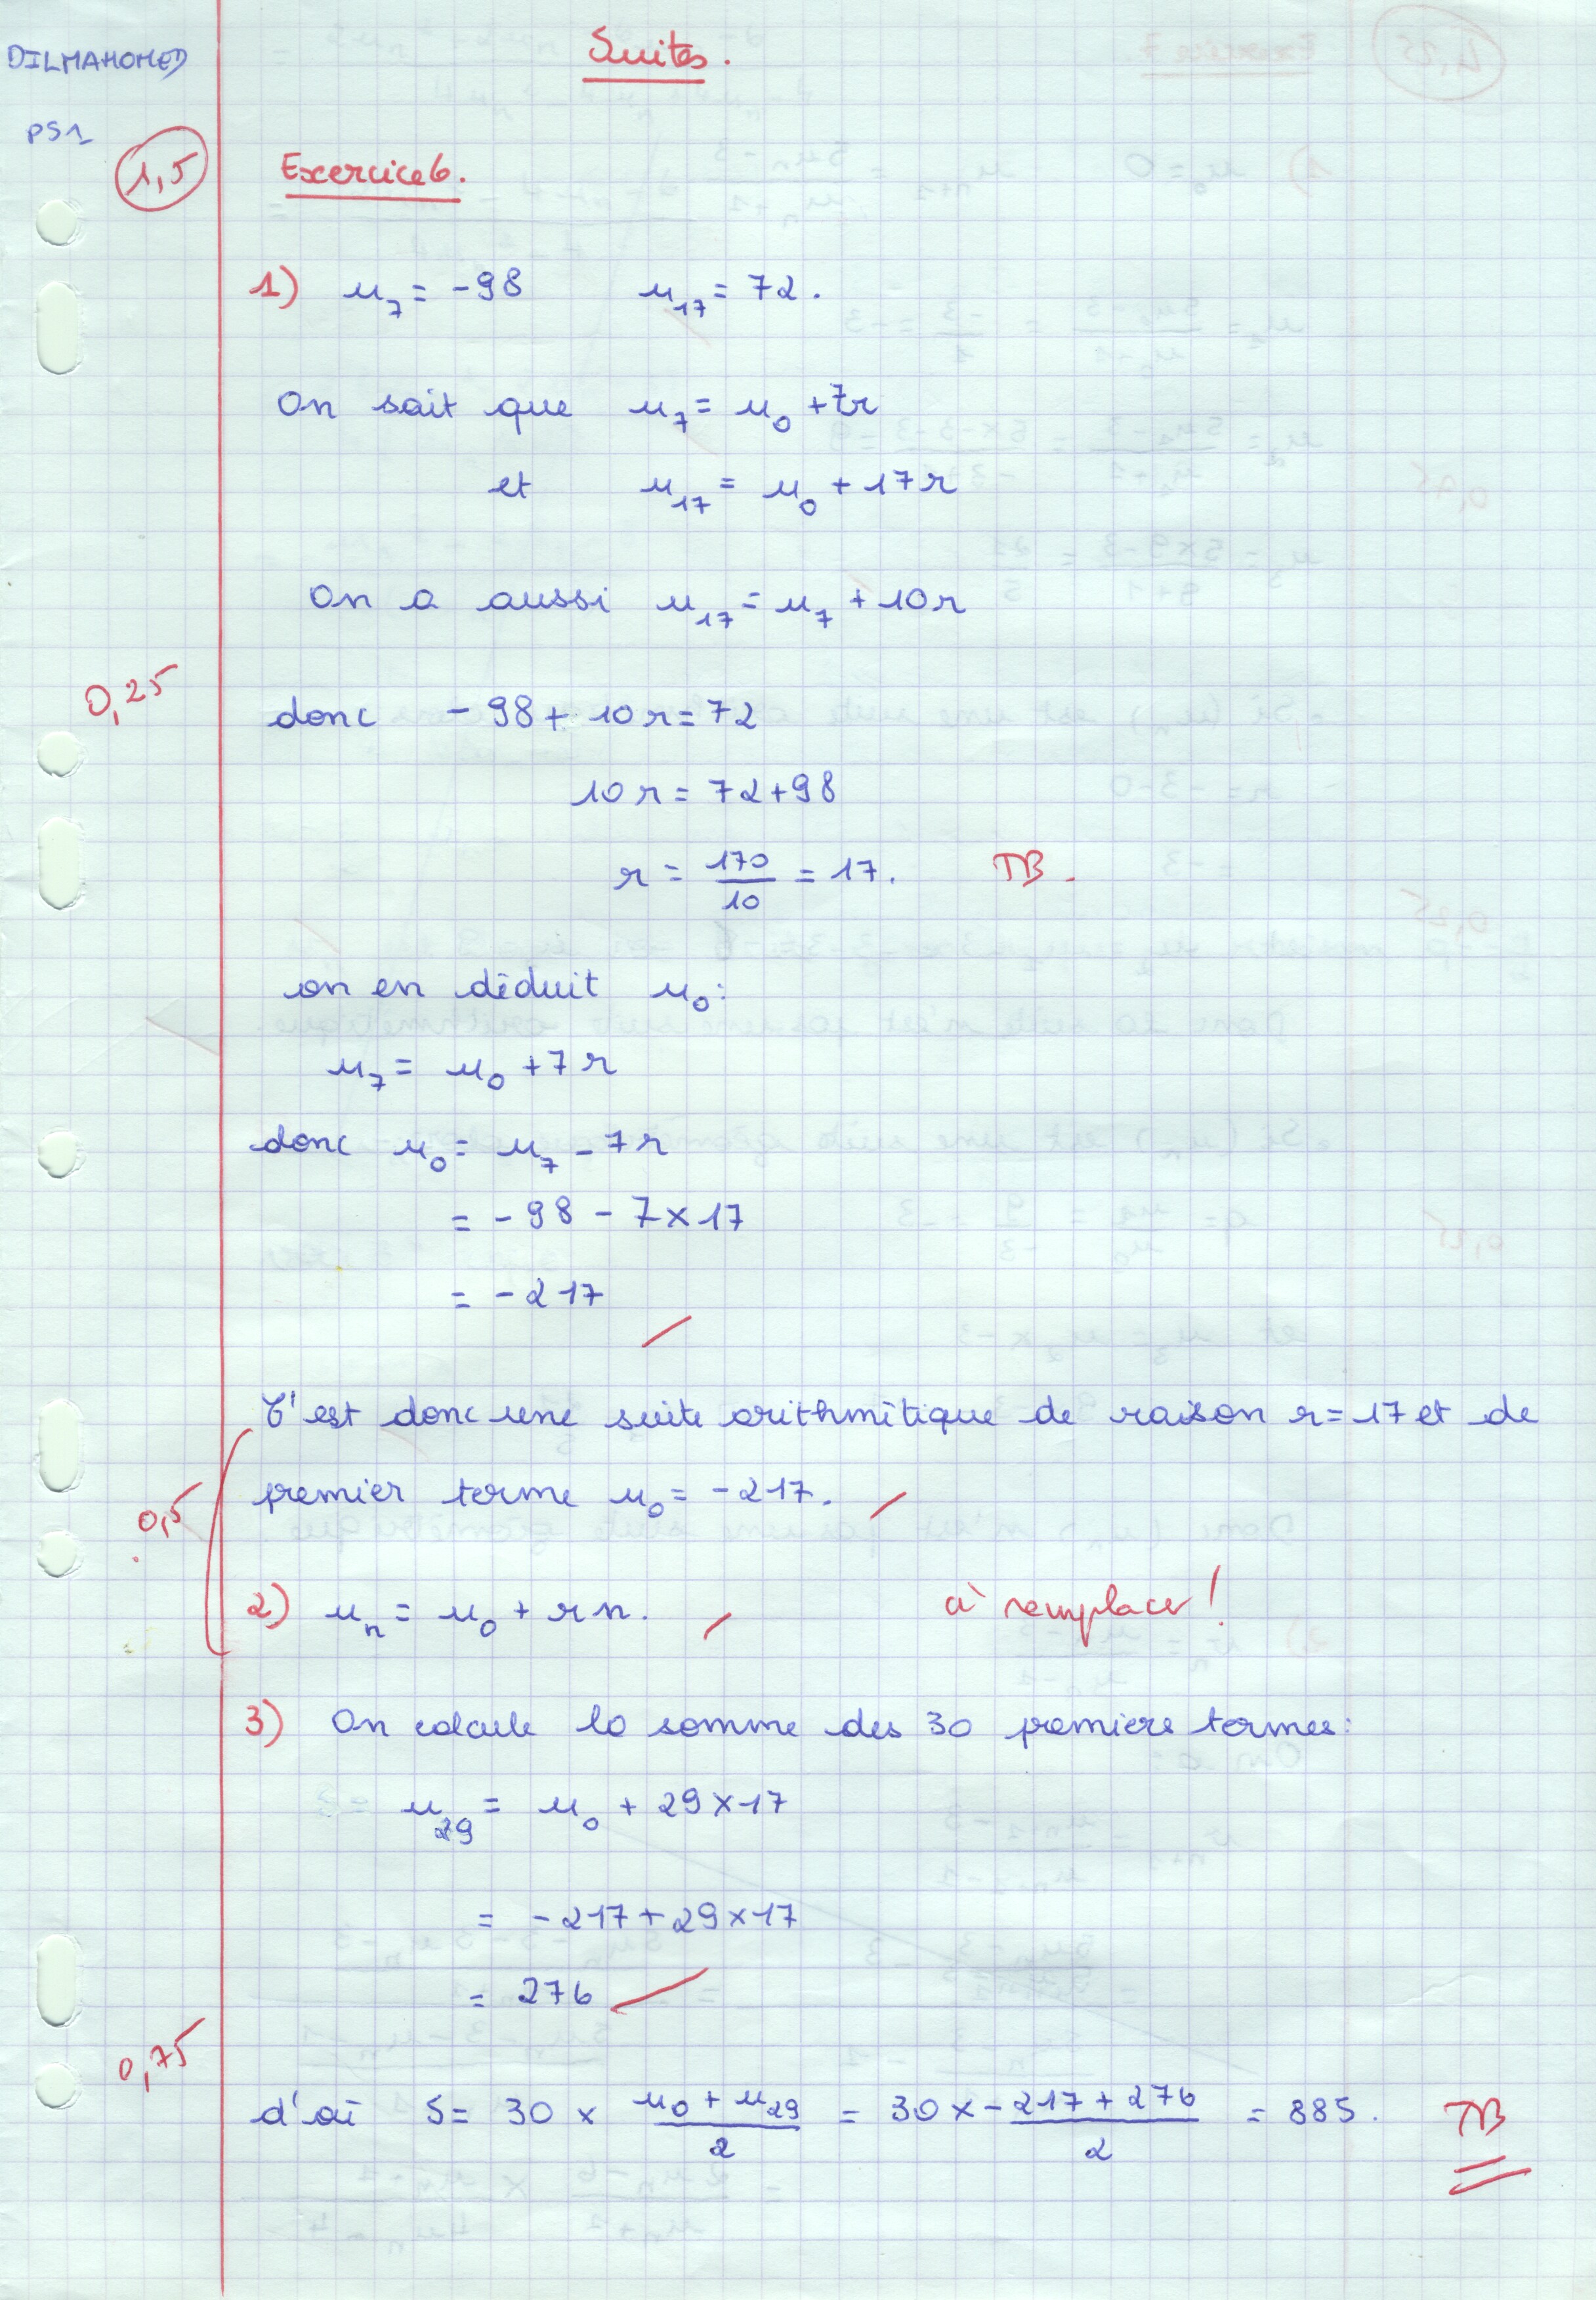 DILMAHOMED
PS1
Suites.
1,5
Exercice 6.
1) u₇ = -98 u₁₇ = 72.
On sait que u₇ = u₀ + 7r
et u₁₇ = u₀ + 17r
On a aussi u₁₇ = u₇ + 10r
0,25
donc -98 + 10r = 72
10r = 72 + 98
r = 170/10 = 17. TB.
on en déduit u₀ :
u₇ = u₀ + 7r
donc u₀ = u₇ - 7r
= -98 - 7 × 17
= -217
C'est donc une suite arithmétique de raison r = 17 et de
premier terme u₀ = -217.
0,5
2) uₙ = u₀ + rn. à remplacer !
3) On calcule la somme des 30 premiers termes :
u₂₉ = u₀ + 29 × 17
= -217 + 29 × 17
= 276
0,75
d'où S = 30 × (u₀ + u₂₉)/2 = 30 × (-217 + 276)/2 = 885. TB